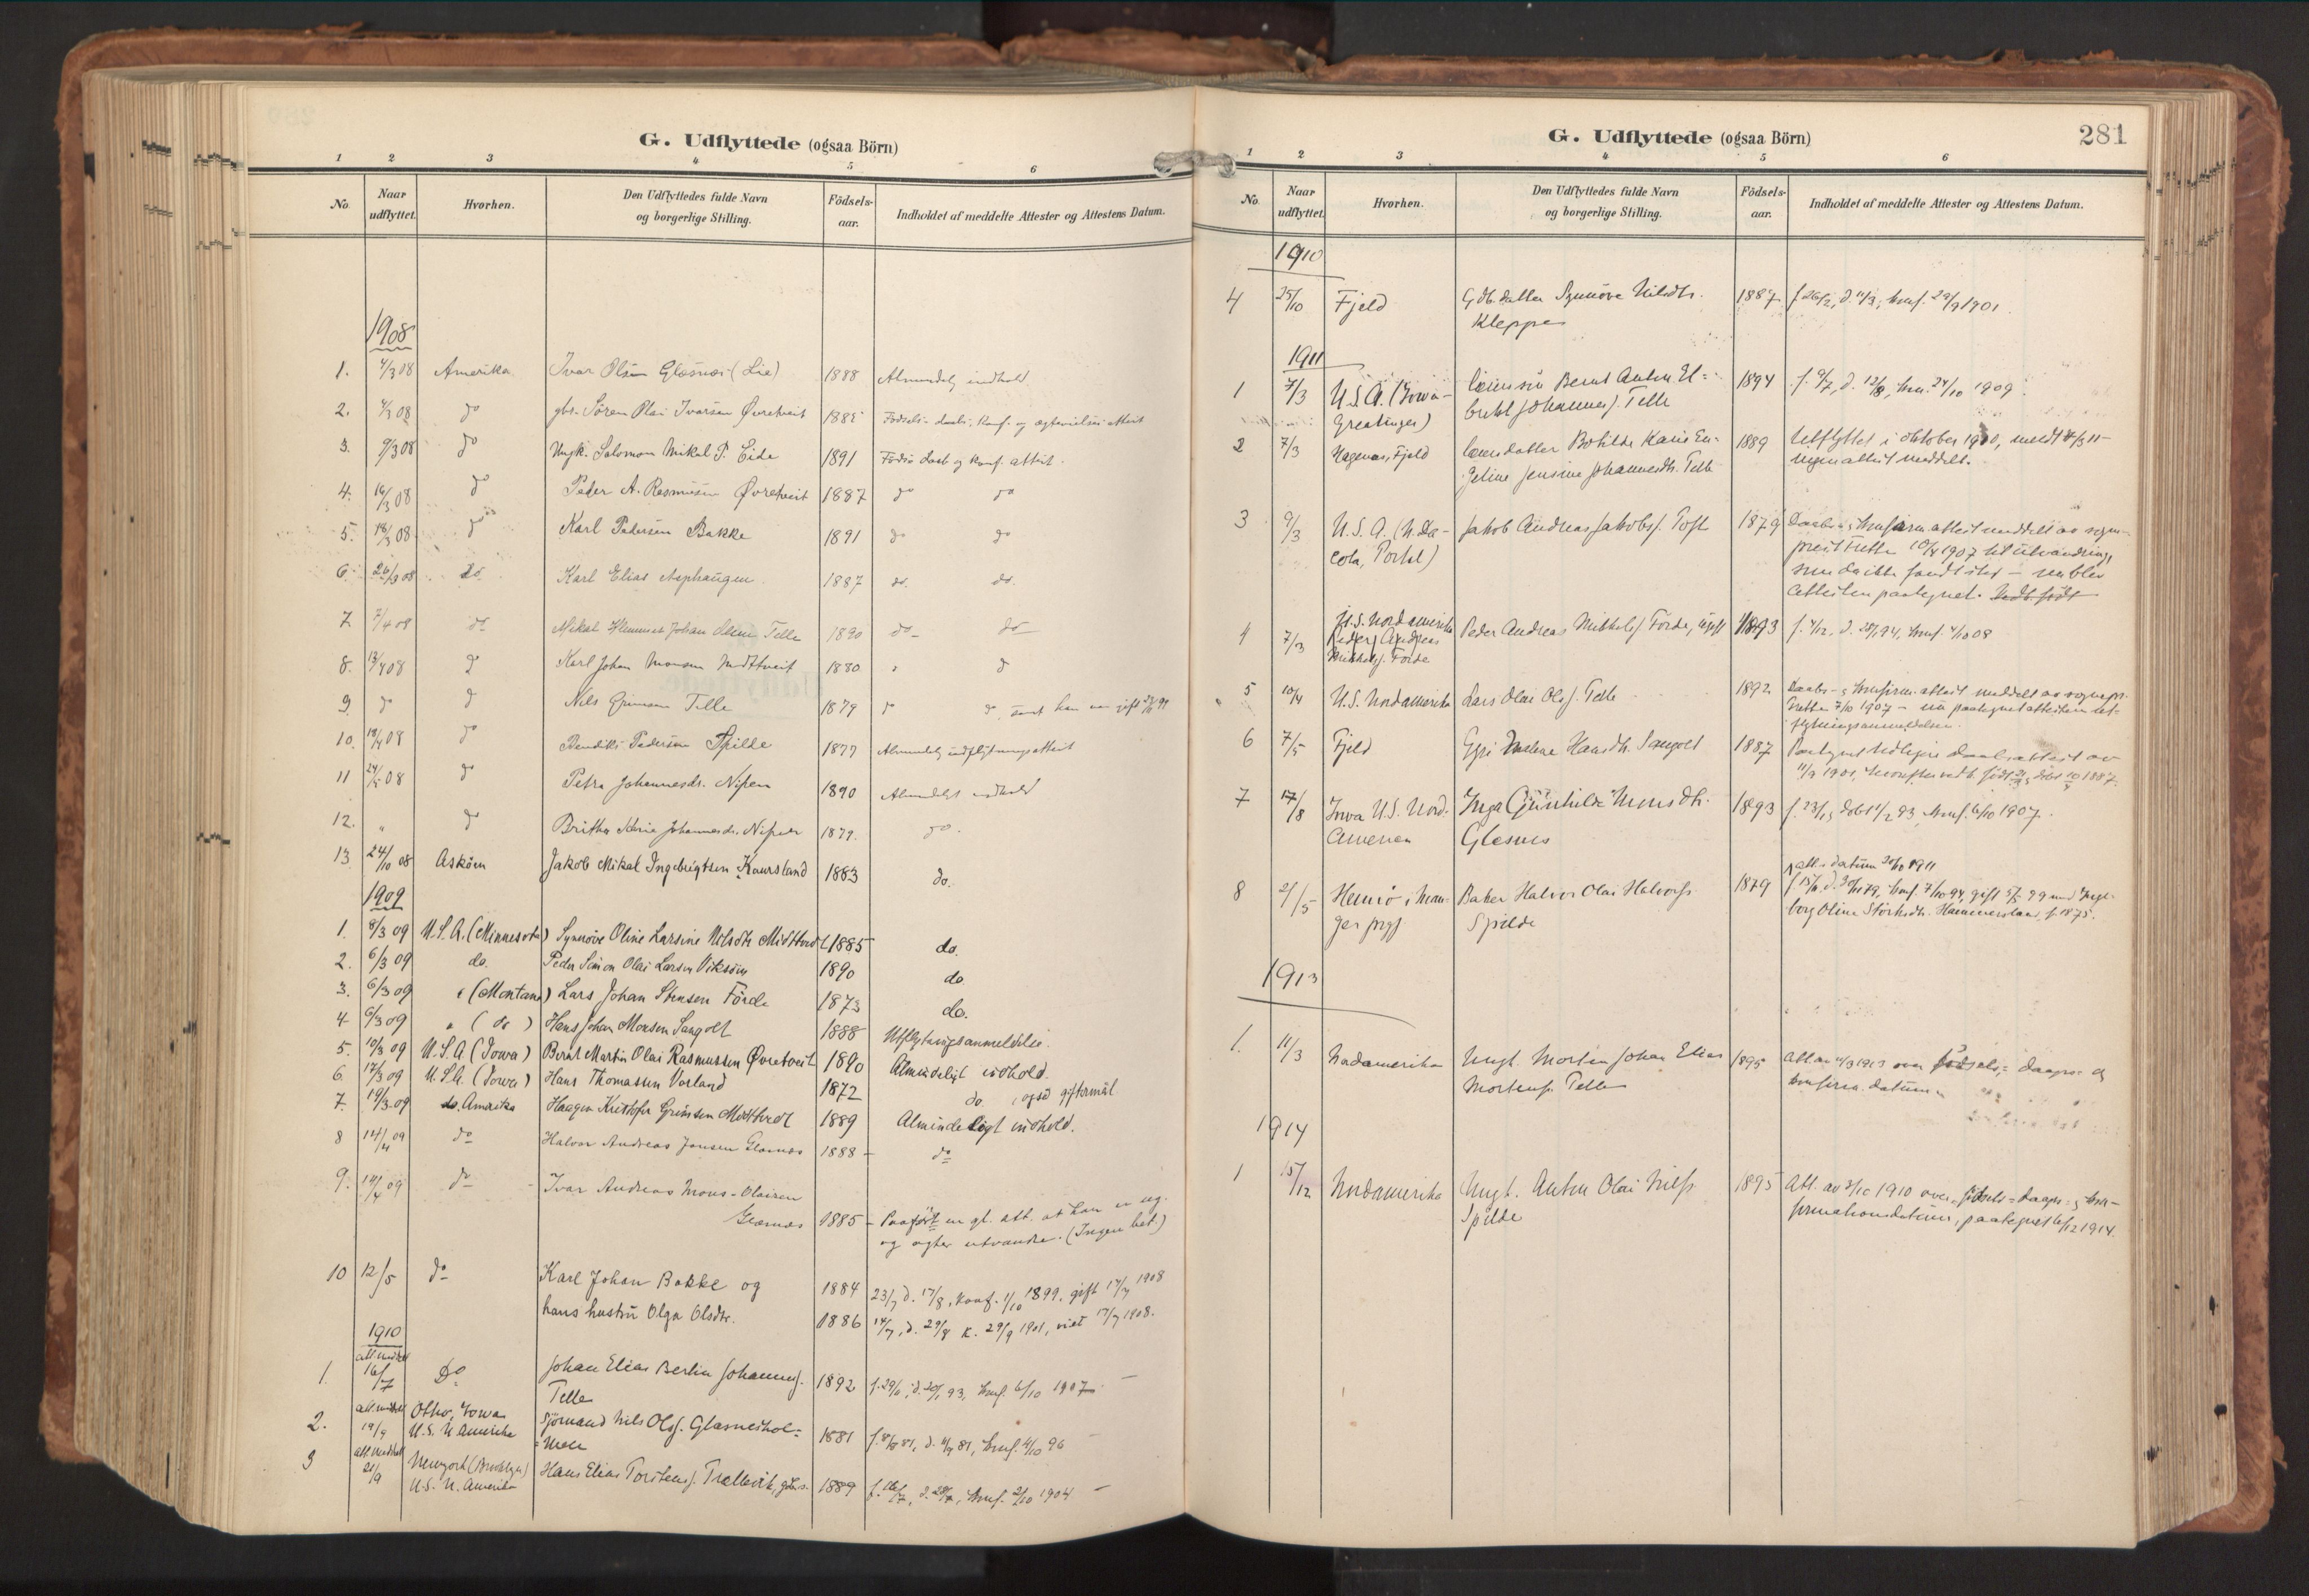 G. Udflyttede (ogsaa Börn)
1 2 3 4 5 6
No. Naar udflyttet. Hvorhen. Den Udflyttedes fulde Navn og borgerlige Stilling. Födsels-aar. Indholdet af meddelte Attester og Attestens Datum.
1908
1. 4/3 08 Amerika Ivar Olsen Glæsnæs (Lie) 1888 Almindelig indhold
2. 08 do gbr. Sören Olai Ivarsen Øvretveit 1885 Födsels- daabs- konf. og attest
3. 9/3 08 do Ungk. Salomon Mikal P. Eide 1891 Födsels daab og konf. attest.
4. 16/3 08 do Peder A. Rasmussen Øvretveit 1887 do do
5. 18/3 08 do Karl Pedersen Bakke 1891 do do
6. 26/3 08 do Karl Elias Asphaugen 1887 do. do.
7 7/4 08 do Mikal Johan Olsen Telle 1890 do do
8. 13/4 08 do Karl Johan Monsen Midttveit 1880 " do
9 do do Nils Grimsen Telle 1879 do do, samt han er gift
10. 18/4 08 do Bendik Pedersen Spilde 1877 Almindelig udflytningsattest
11 24/5 08 do Petra Johannesdr. Nipen 1890 Almindeligt indhold
12. " do Britha Maria Johannesdr. Nipen 1879. do.
13 24/10 08 Asköen Jakob Mikal Ingebrigtsen Kaursland 1883 do.
1909
1. 8/3 09 U.S.A. (Minnesota) Synnöve Oline Larsine Nilsdtr Midttveit 1885 do.
2. 6/3 09 do. Peder Simon Olai Larsen Viksöen 1890 do
3. 6/3 09 " (Montana) Lars Johan Stensen Förde 1873 do.
4. 6/3 09 " (do) Hans Johan Monsen Sangolt 1888 Utflytningsanmeldelse.
5. 10/3 09 U.S.A. (Iowa) Bernt Martin Olai Rasmussen Øvretveit 1890 Almindeligt indhold.
6. 17/3 09 U.S.A. (Iowa) Hans Thomassen Vorland 1872 do. , også giftermål
7. 19/3 09 do. Amerika Haagen Kristofer Grimsen Midttveit 1889 Almindeligt indhold.
8 14/4 09 do Halvor Andreas Jansen Glesnæs 1888 - do
9. 14/4 09 do - Ivar Andreas Mons-Olaisen
Glesnæs 1885 - Paaført en gl. att. at han er ug.
og agter utvandre. (Ingen bet.)
10 12/5 do Karl Johan Bakke og 1884 23/7 d. 17/8, konf. 1/10 1899. gift 17/7 1908
hans hustru Olga Olsdtr. 1886 14/7, d. 29/8 k. 29/9 1901, viet 17/7 1908.
1910
1. att. meddelt 16/7 Do Johan Elias Berlin Johannesj. 1892 f. 29/11, d. 20/1 93, konf. 6/10 1907 -
Telle
2. att. meddelt 19/9 Otho, Iowa Sjömand Nils Olsj. Glæsneshol- 1881 f. 81, d. 81, konf. 4/10 96 -
U.S. N. Amerika men
3 att. meddelt 21/9 Newyork (Brooklyn) Hans Elias Torstensj. Trællevik, gbrs. 1889 f. 16/7, d. 28/7, konf. 2/10 1904 -
U.S. N. Amerika
G. Udflyttede (ogsaa Börn) 281
1 2 3 4 5 6
No. Naar udflyttet. Hvorhen. Den Udflyttedes fulde Navn og borgerlige Stilling. Födsels-aar. Indholdet af meddelte Attester og Attestens Datum.
1910
4 25/10 Fjeld Gdb.datter Synnöve Nilsdtr. 1887 f. 26/2, d. 11/3, konf. 29/9 1901
Kleppe
1911
1 7/3 U.S.A. (Iowa- Bernt Anton El- 1894 f. 9/7, d. 12/8, konf. 24/10 1909.
Greatinger) Johannesj. Telle
2 7/3 Hagenæs, Fjeld datter Bothilde Karie En- 1889 Utflyttet i oktober 1910, meldt 7/3 11 -
geline Jensine Johannesdtr. Telle ingen attest meddelt.
3 9/3 U.S.A. (N. Da- Jakob Andreas Jakobsj. Toft 1879 Daabs- & konfirm. attest meddelt av sogne-
cota, Portal) prest 10/4 1907 til utvandring,
som da ikke fandt sted - nu blev
attesten paategnet.
4 7/3 U.S. Nordamerika Peder Andreas Mikkelsj. Förde, ugift 1893 f. 4/12, d. 28/1 94, konf. 4/10 08
Peder Andreas
Mikkelsj. Förde
5 10/4 U.S. Nordamerika Lars Olai Olsj. Telle 1892 Daabs- & konfirm. attest meddelt av sognepr.
7/10 1907 - nu paategnet attesten ut-
flytningsanmeldelse.
6 7/5 Fjeld Hansdtr. Sangolt 1887 Paategnet tidligere daabsattest av
11/9 1901, hvorefter vedk. født döbt 1887.
7 17/8 Iowa U.S. Nord- Inga Gunhilde Monsdtr. 1893 f. 23/1, döbt 12/2 93 konf. 6/10 1907.
Amerika Glesnes
att.s datum 1911
8 21/5 Hernö i Man- Baker Halvor Olai Halvorsj. 1879 f. 15/11, d. 30/11 79, konf. 7/10 94, gift 99 med Inge-
ger prgj. Spilde borg Oline Hammersland, f. 1875.
1913
1. 11/3 Nordamerika Ungk. Morten Johan Elias 1895 Att. av 11/3 1913 over födsels-, daaps- og
Mortensj. Telle konfirm. datum.
1914
1 15/12 Nordamerika Ungk. Anton Olai Nilsj. 1895 Att. av 3/10 1910 over födsels- daaps- & kon-
Spilde firmationsdatum, paategnet 15/12 1914.